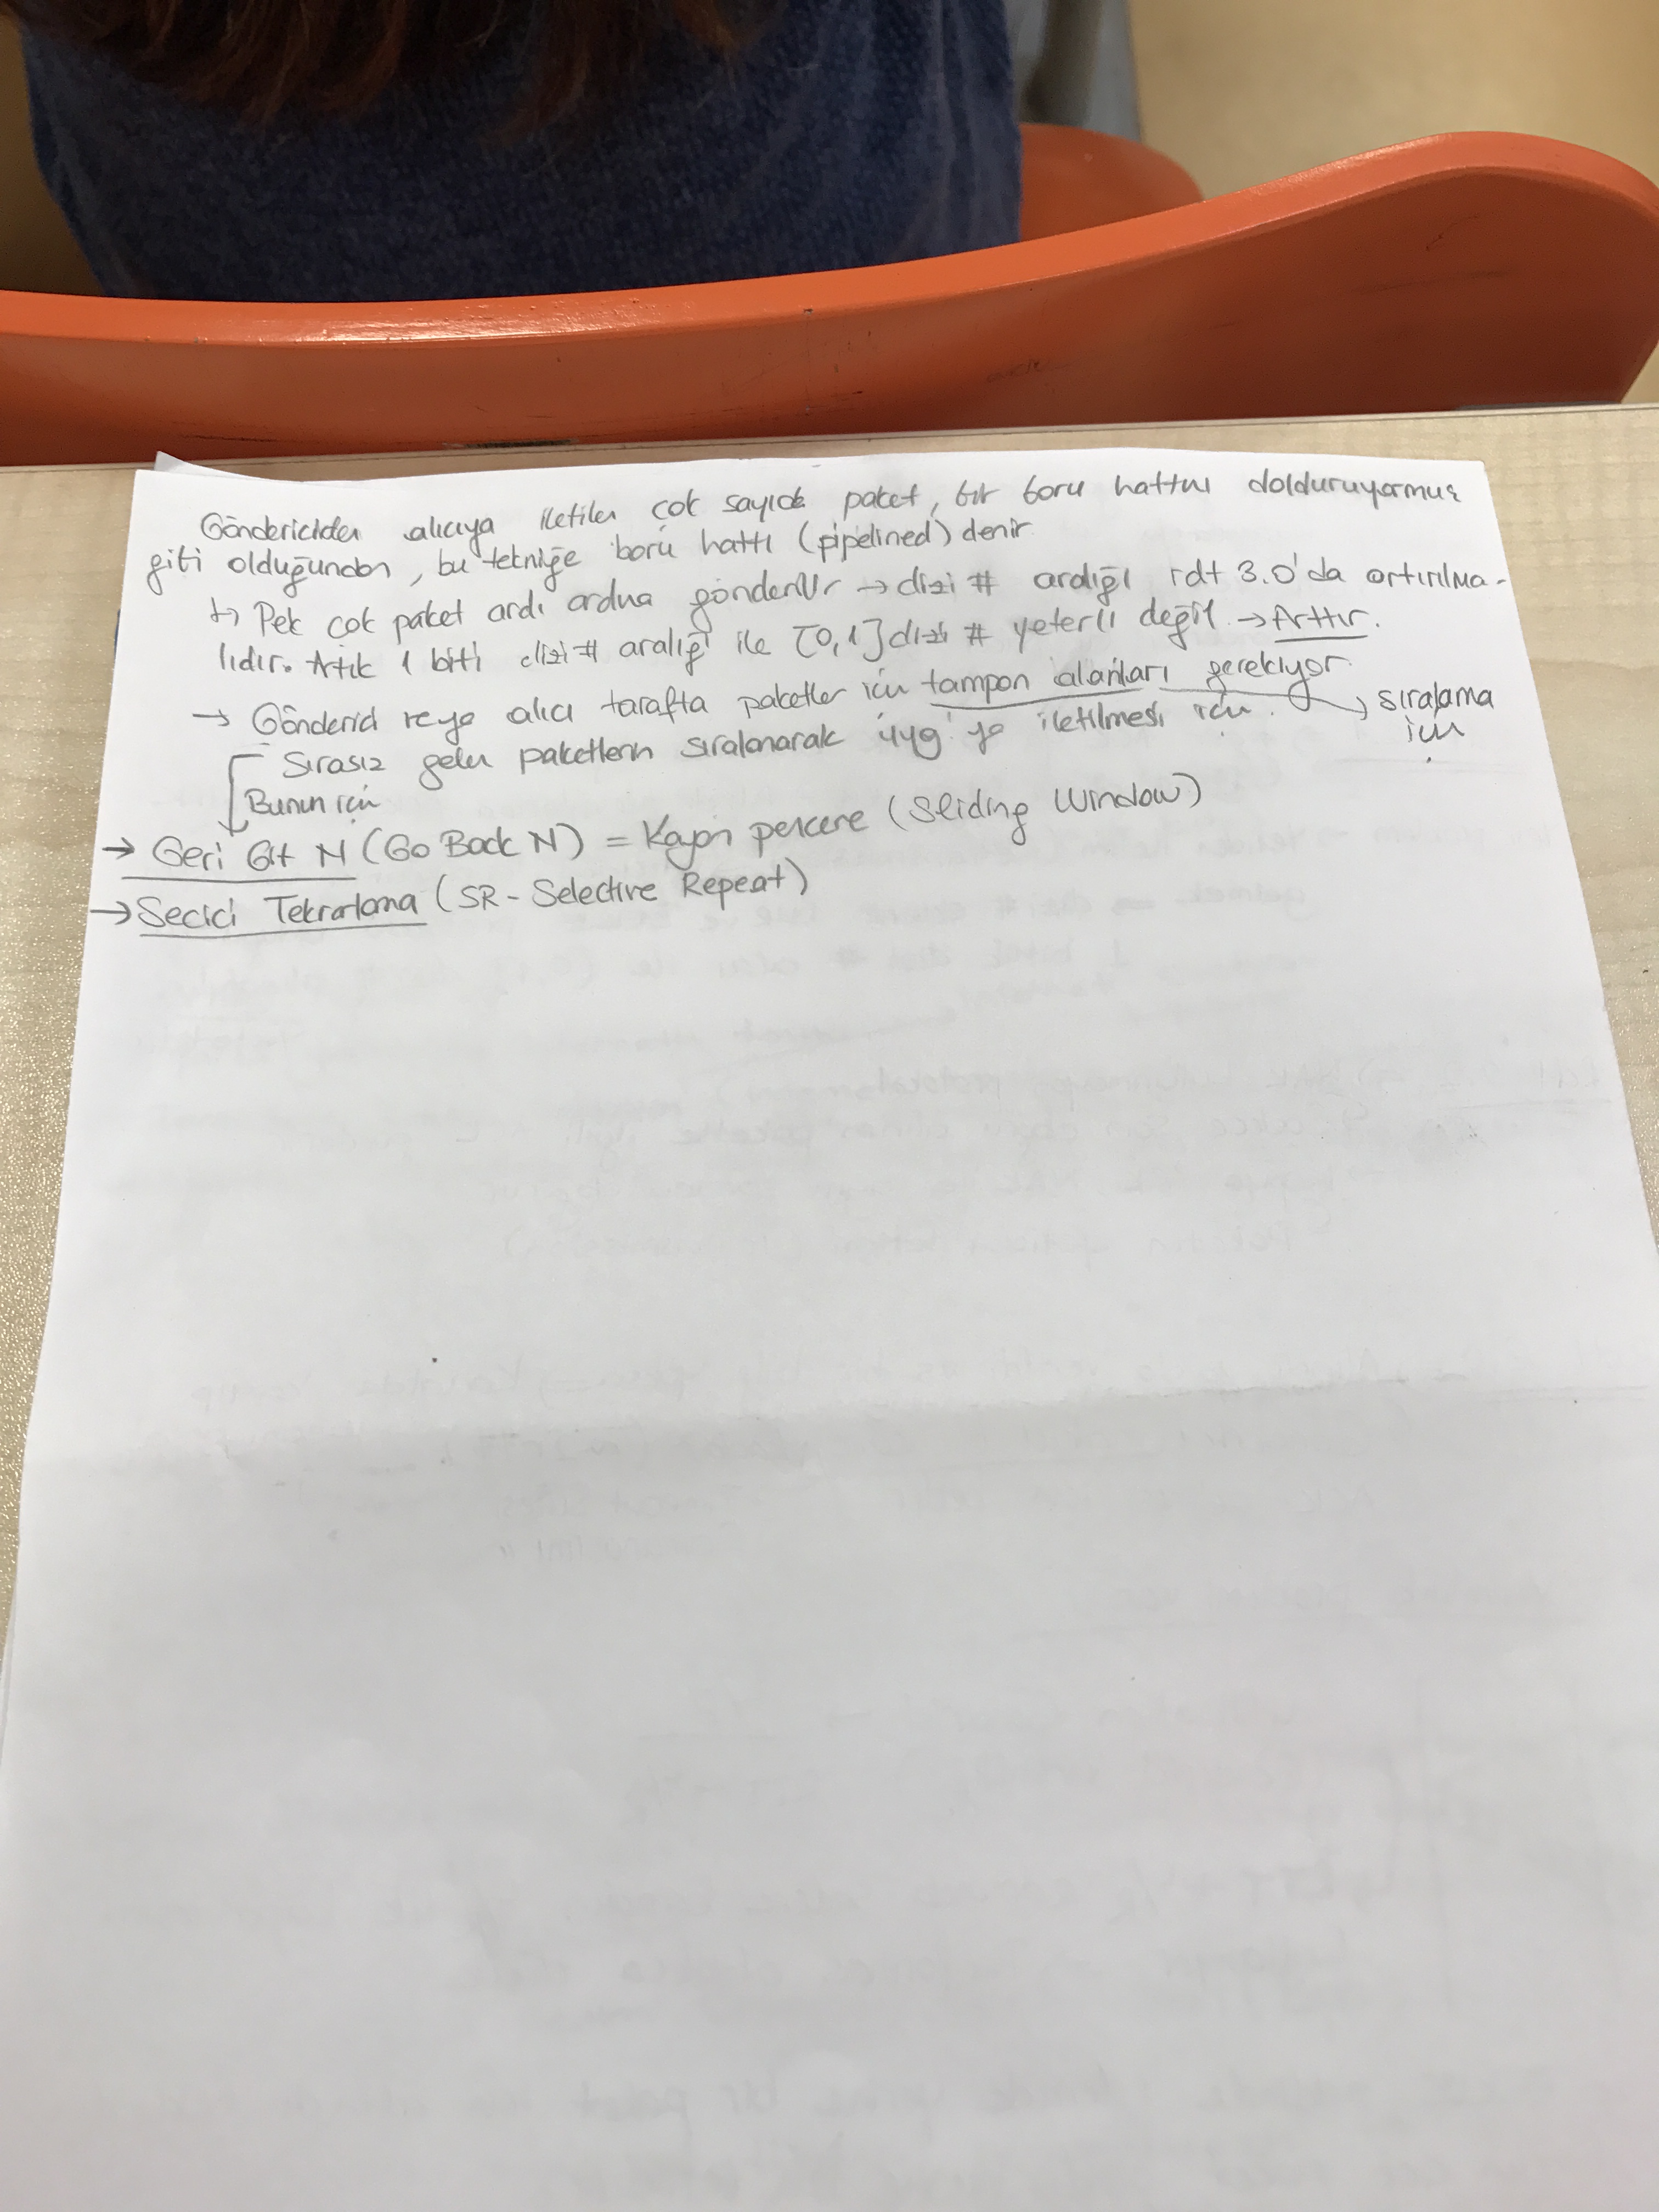 Göndericiden alıcıya iletilen çok sayıda paket, bir boru hattını dolduruyormuş
gibi olduğundan, bu tekniğe boru hattı (pipelined) denir
↳ Pek çok paket ardı ardına gönderilir → dizi # aralığı rdt 3.0'da artırılma-
lıdır. Artık 1 biti dizi # aralığı ile [0,1] dizi # yeterli değil → Arttır.
→ Gönderici veya alıcı tarafta paketler için tampon alanları gerekiyor. → sıralama
için
Sırasız gelen paketlerin sıralanarak uyg'ya iletilmesi için.
Bunun için
→ Geri Git N (Go Back N) = Kayan pencere (Sliding Window)
→ Secici Tekrarlama (SR - Selective Repeat)